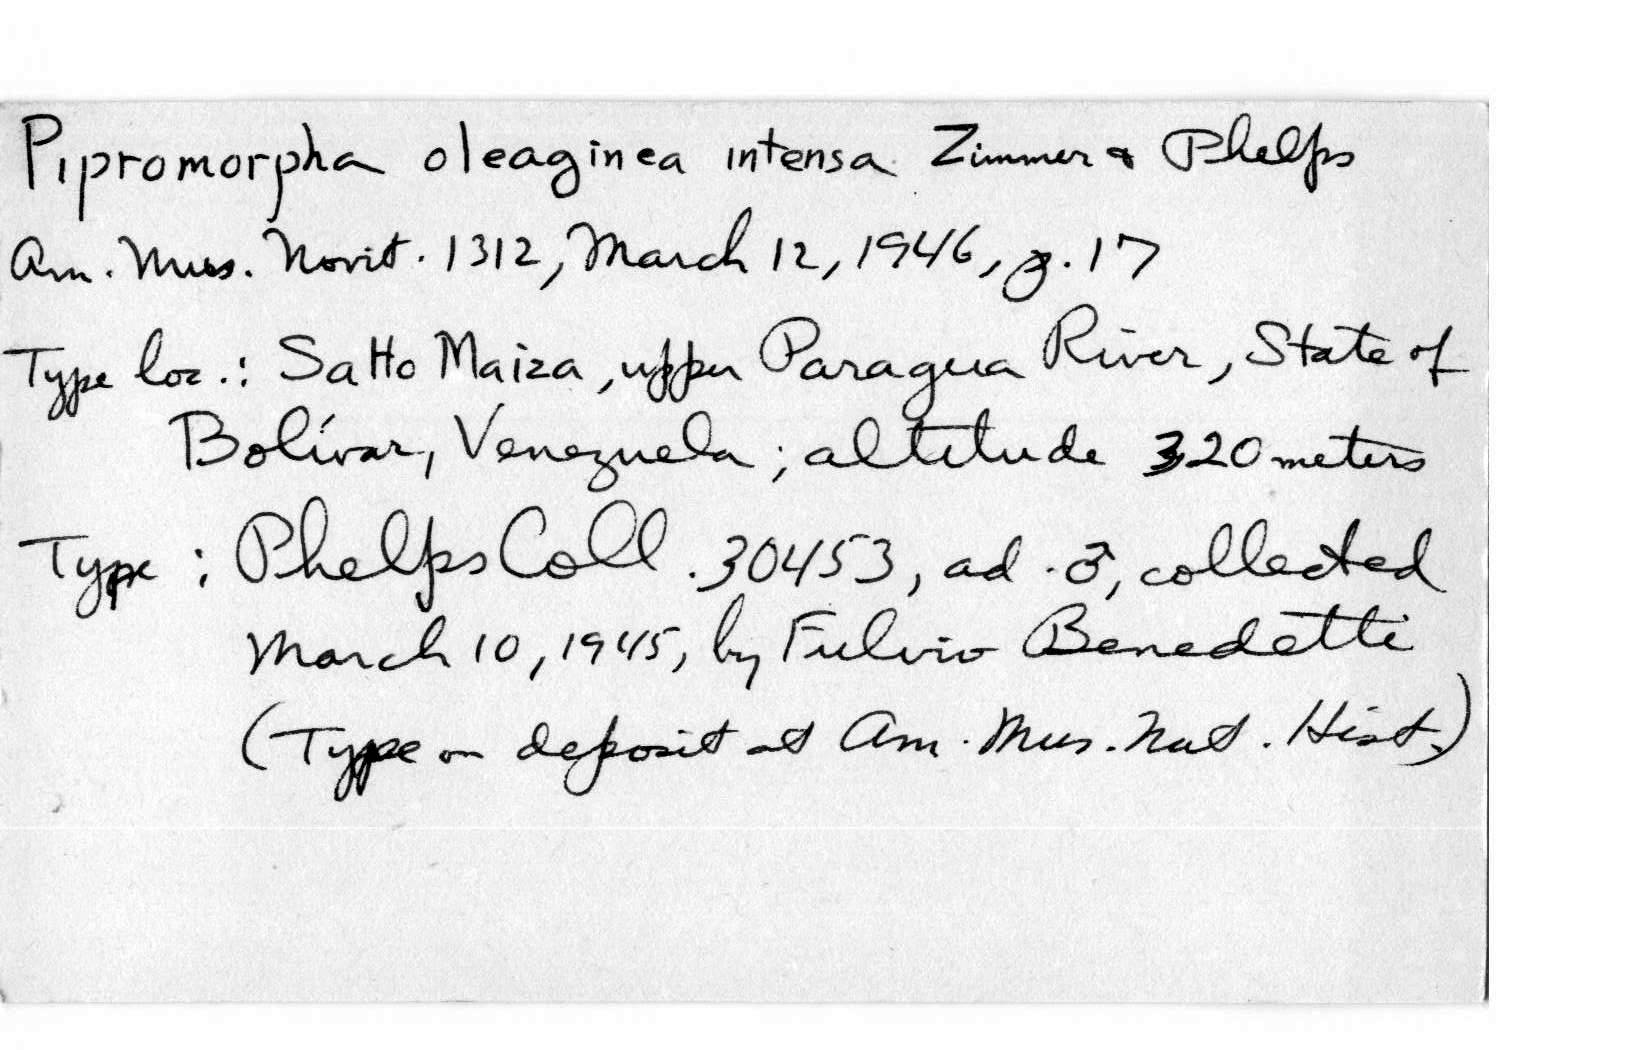 Pipromorpha oleaginea intensa Zimmer & Phelps
Am. Mus. Novit. 1312, March 12, 1946, p. 17
Type loc.: Salto Maiza, upper Paragua River, State of
Bolívar, Venezuela; altitude 320 meters
Type: Phelps Coll. 30453, ad. ♂, collected
March 10, 1945, by Fulvio Benedetti
(Type on deposit at Am. Mus. Nat. Hist.)